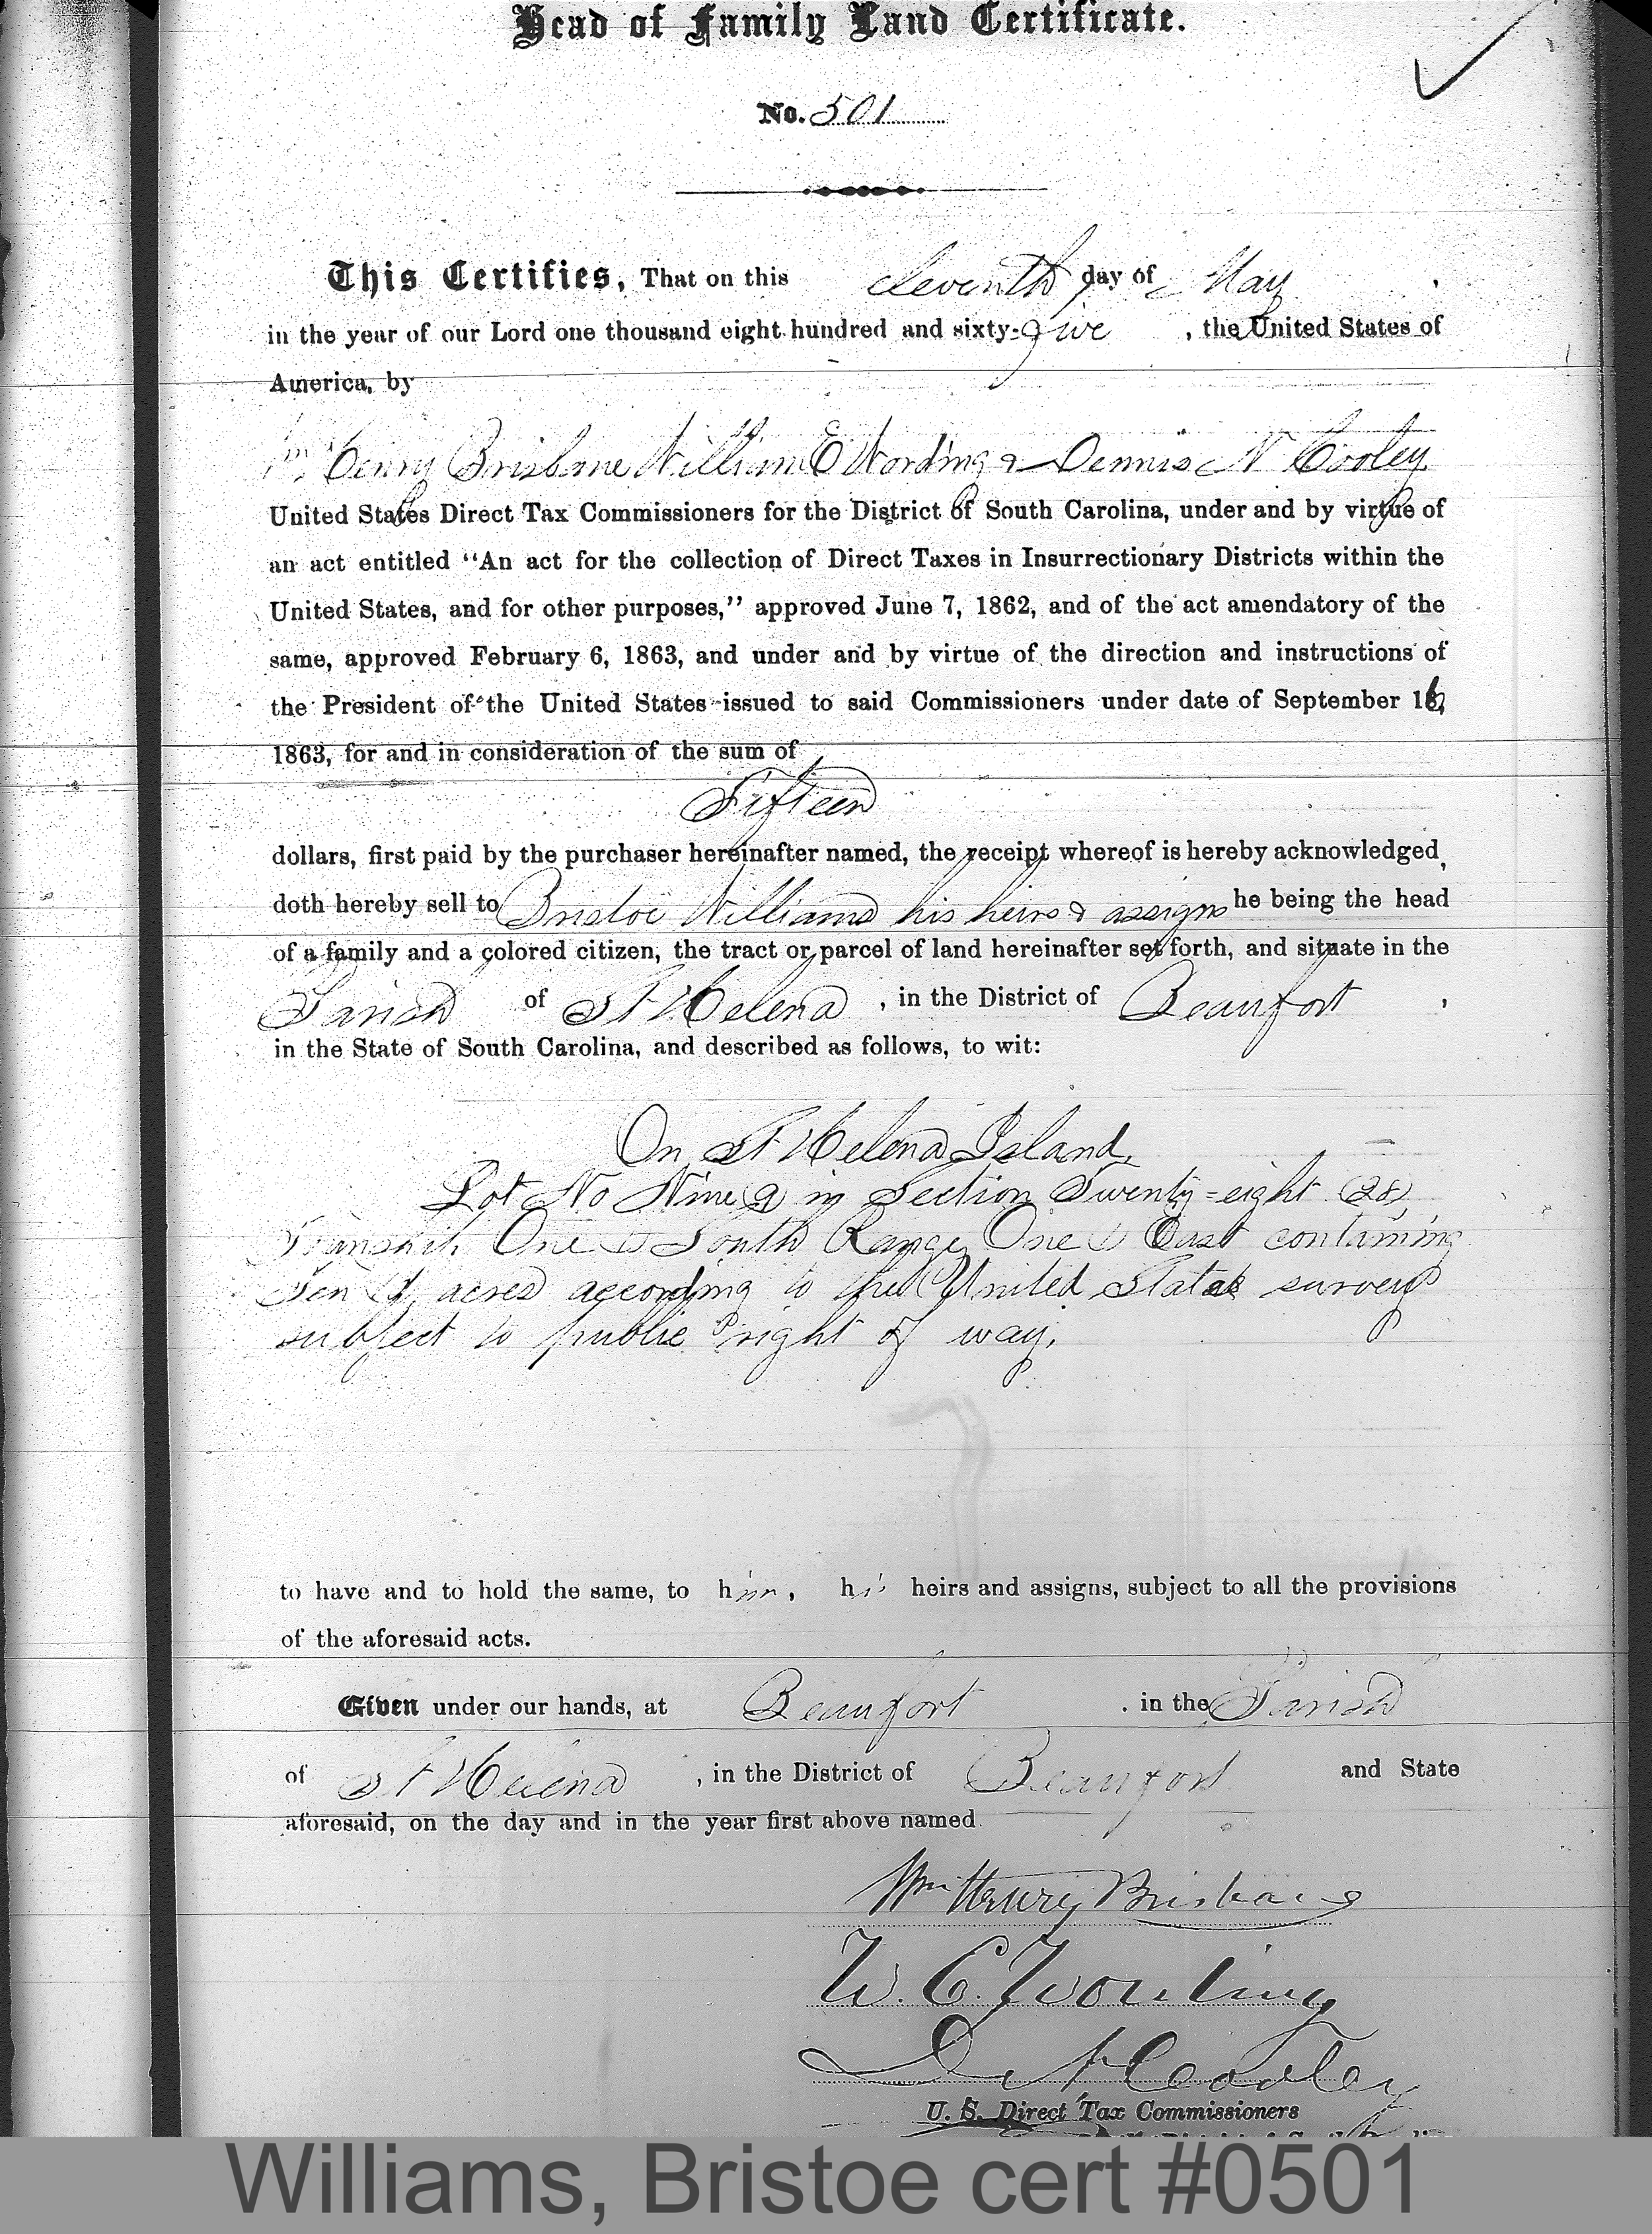 Head of Family Land Certificate.
No. 501
This Certifies, That on this eleventh day of May
in the year of our Lord one thousand eight hundred and sixty-five, the United States of
America, by
Wm Henry Brisbane William E Wording & Dennis N Cooley
United States Direct Tax Commissioners for the District of South Carolina, under and by virtue of
an act entitled "An act for the collection of Direct Taxes in Insurrectionary Districts within the
United States, and for other purposes," approved June 7, 1862, and of the act amendatory of the
same, approved February 6, 1863, and under and by virtue of the direction and instructions of
the President of the United States issued to said Commissioners under date of September 16,
1863, for and in consideration of the sum of
Fifteen
dollars, first paid by the purchaser hereinafter named, the receipt whereof is hereby acknowledged,
doth hereby sell to Bristoe Williams his heirs & assigns he being the head
of a family and a colored citizen, the tract or parcel of land hereinafter set forth, and situate in the
Parish of St Helena, in the District of Beaufort,
in the State of South Carolina, and described as follows, to wit:
On St Helena Island,
Lot No Nine (9) in Section Twenty-eight (28)
Township One (1) South Range One (1) East containing
Ten acres according to the United States survey
subject to public right of way.
to have and to hold the same, to him, his heirs and assigns, subject to all the provisions
of the aforesaid acts.
Given under our hands, at Beaufort, in the Parish
of St Helena, in the District of Beaufort and State
aforesaid, on the day and in the year first above named.
Wm Henry Brisbane
W. E. Wording
D N Cooley
U. S. Direct Tax Commissioners
Williams, Bristoe cert #0501